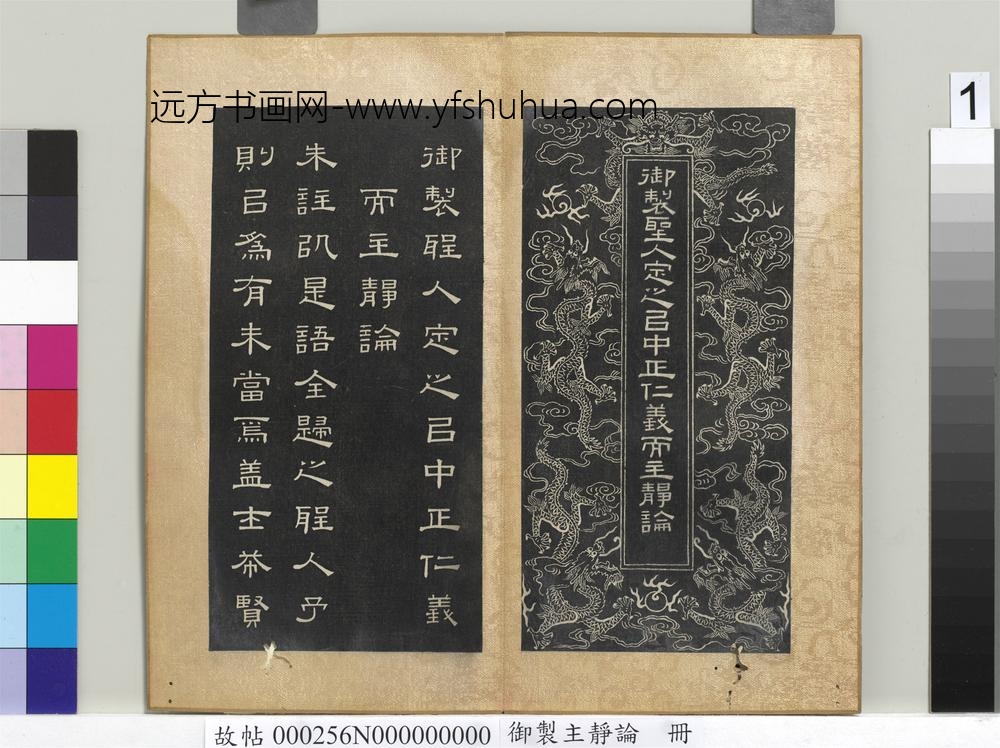 远方书画网-www.yfshuhua.com
1
御製聖人定之㠯中正仁義而主靜論
御製聖人定之㠯中正仁義
而主靜論
朱註訊是語全歸之聖人予
則㠯為有未當焉蓋士希賢
故帖 000256N000000000 御製主靜論 冊